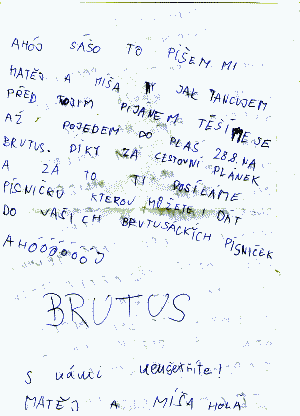 AHOJ SÁŠO TO PÍŠEM MI
MATĚJ A MÍŠA JAK TANCUJEM
PŘED TVJIM PIJÁNEM TĚŠÍME SE
AŽ POJEDEM DO PLAS 28.8. NA
BRUTUS. DÍKY ZA CESTOVNÍ PLÁNEK
A ZA TO TI POSÍLÁME
PÍSNIČKU KTEROU MŮŽETE I DÁT
DO VAŠICH BRUTUSÁCKÍCH PÍSNIČEK
AHOOOOOOJ
BRUTUS
S námi neušetříte!
MATĚJ A MÍŠA HOLA